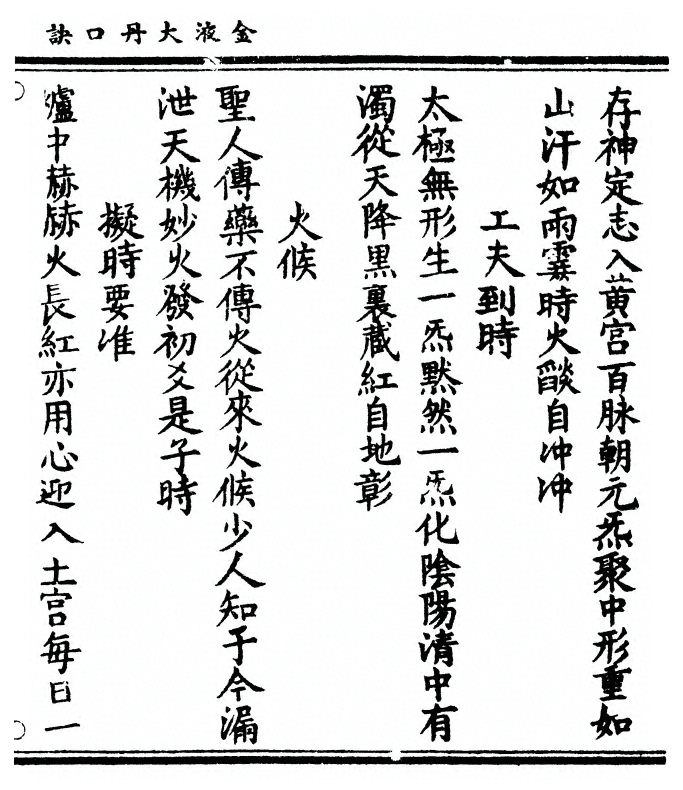 金液大丹口訣
存神定志入黄宫百脉朝元炁聚中形重如
山汗如雨霎時火燄自冲冲
工夫到時
太極無形生一炁默然一炁化陰陽清中有
濁從天降黒裏藏紅自地彰
火候
聖人傳藥不傳火從來火候少人知予今漏
泄天機妙火發初爻是子時
擬時要准
爐中赫赫火長紅亦用心迎入土宫每日一